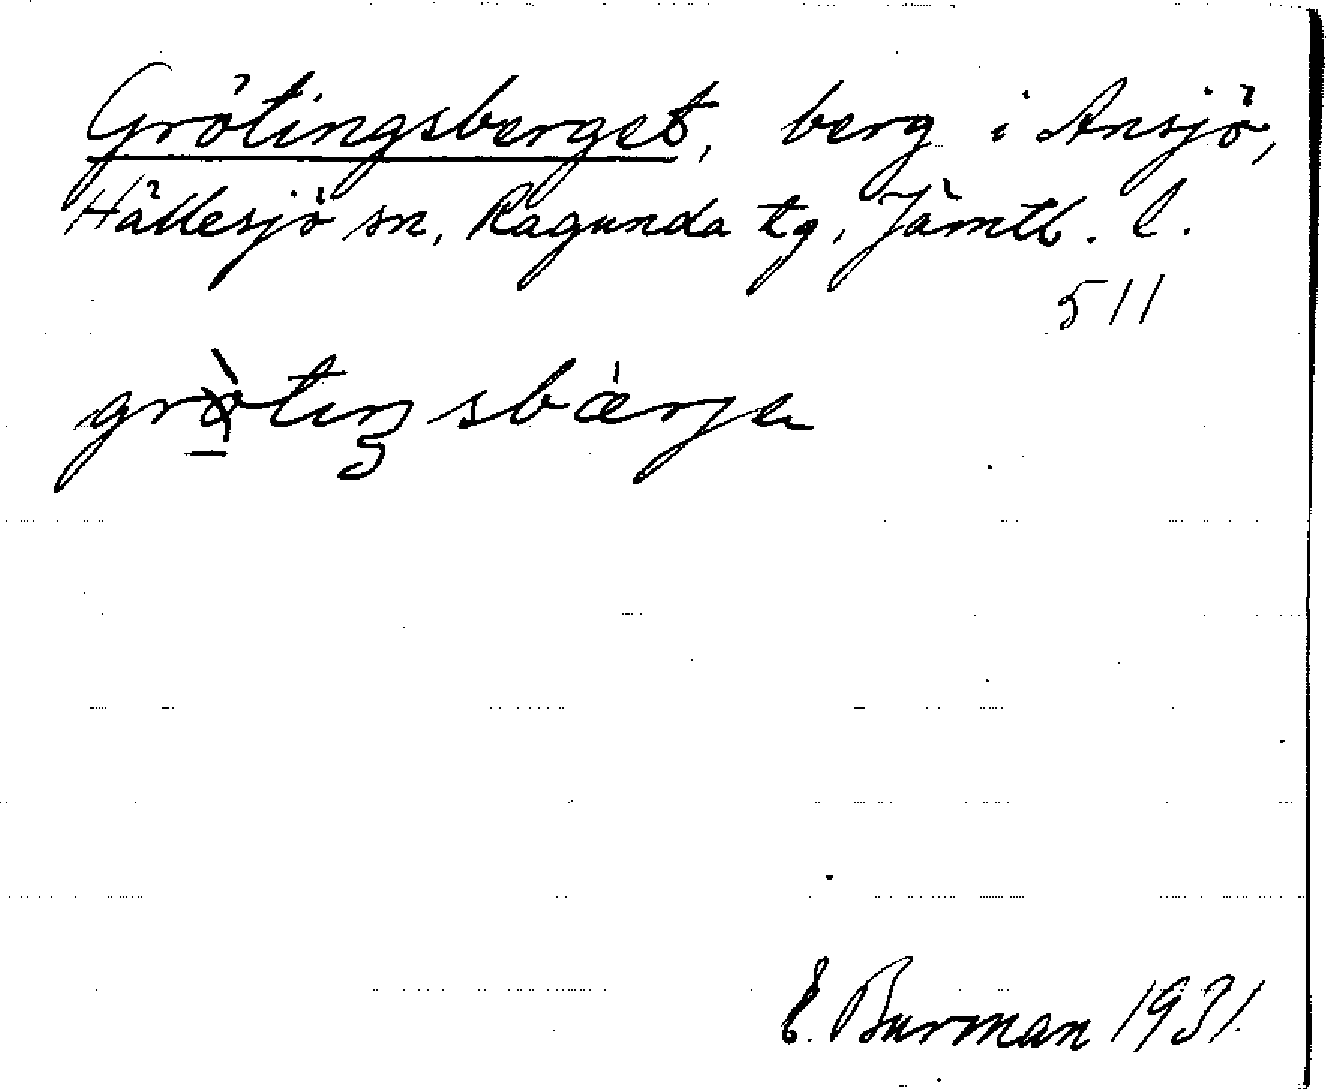 Grötingsberget, berg i Ansjö,
Hällesjö sn, Ragunda tg, Jämtl. l.
511
grö̀tiŋsbárje
E. Burman 1931.